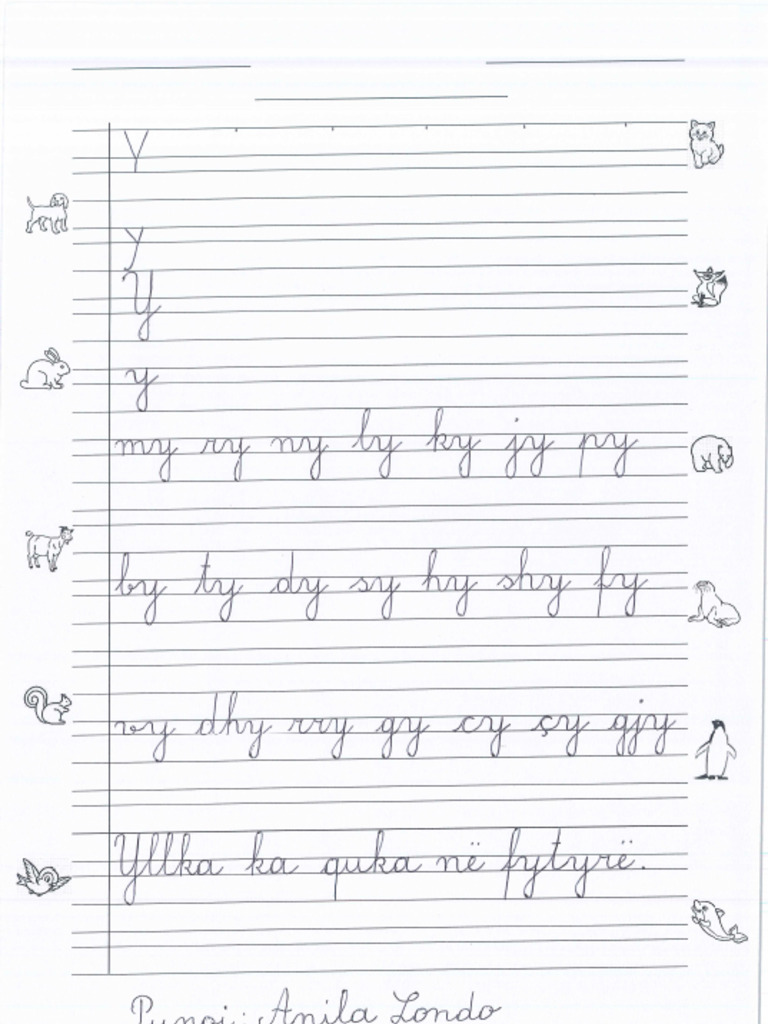 Y
y
Y
y
my ry ny ly ky jy py
by ty dy sy hy shy fy
vy dhy rry gy cy çy gjy
Yllka ka quka në fytyrë.
Punoi: Anila Londo